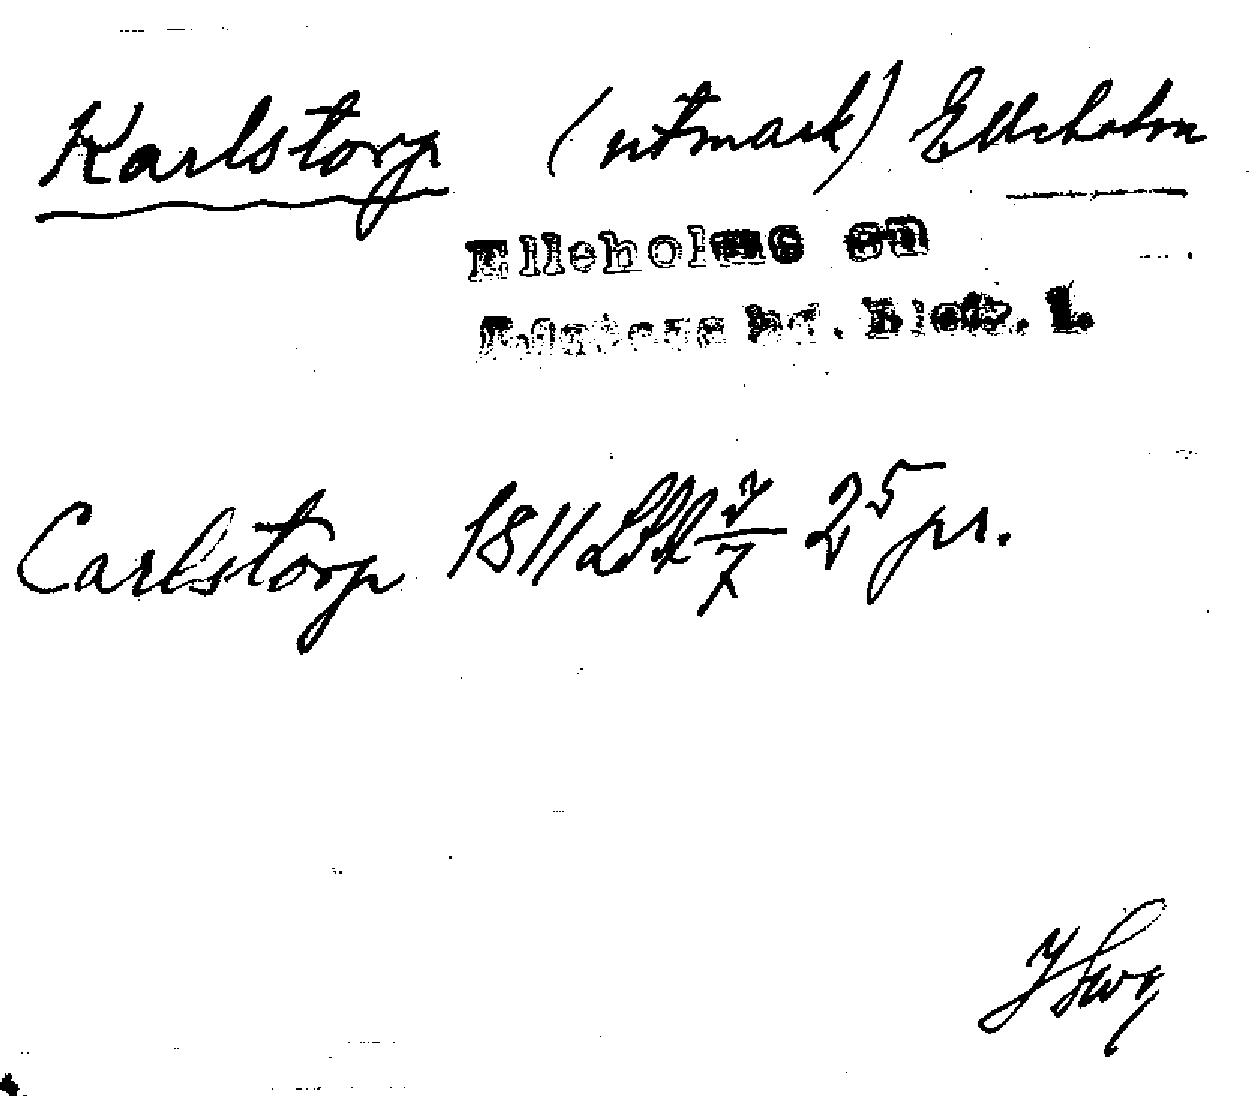 Karlstorp (utmark) Elleholm
Elleholms sn
Listers hd. Blek. l.
Carlstorp 1811 2/7 25 pr.